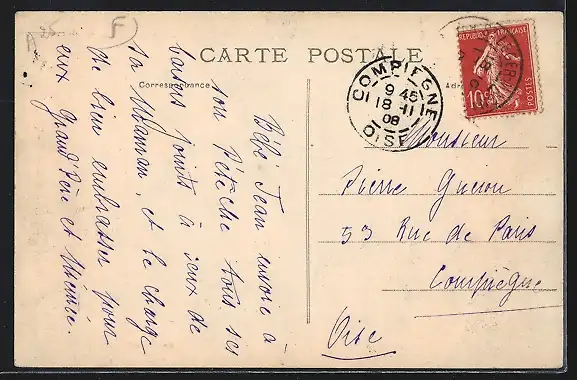 A
F
CARTE POSTALE
Correspondance
Bébé Jean envoie à
son Pétéche tous ses
baisers joints à ceux de
sa Maman, et le charge
de bien embrasser pour
eux Grand Père et Mémée.
COMPIEGNE
9 45
18 11
08
OISE
REPUBLIQUE FRANÇAISE
10c
POSTES
Monsieur
Pierre Guenou
53 Rue de Paris
Compiègne
Oise